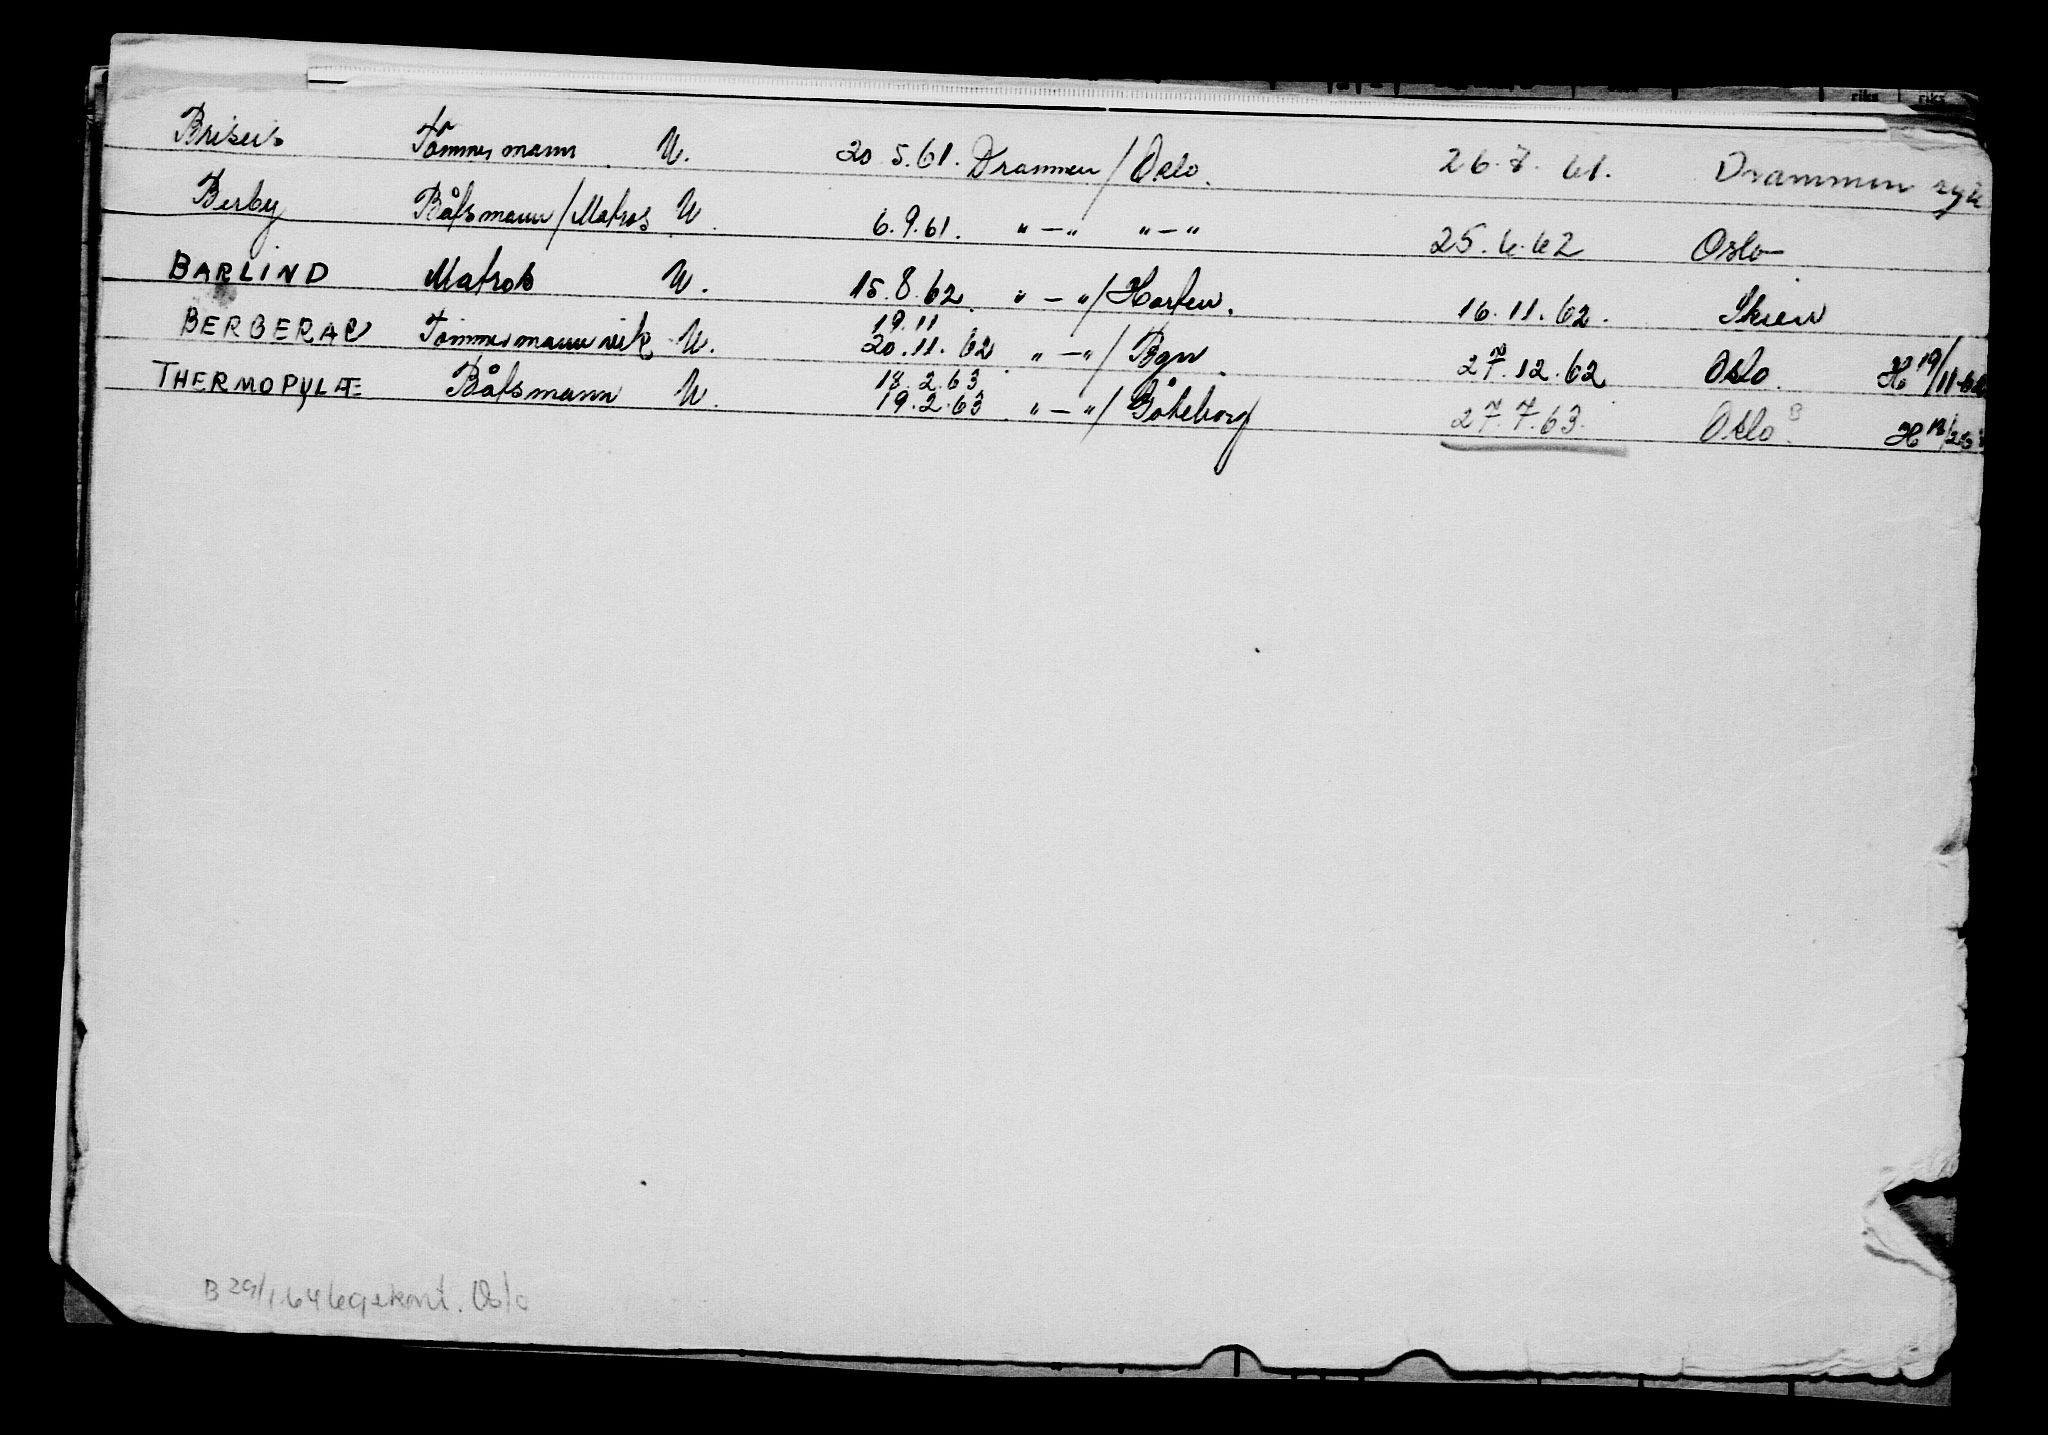 Briseis Tømmermann U. 20.5.61. Drammen / Oslo. 26.7.61. Drammen syk
Berby Båtsmann/Matros U. 6.9.61. " - " " - " 25.6.62 Oslo
BARLIND Matros U. 15.8.62. " - " / Horten. 16.11.62. Skien
19.11
BERBERAC Tømmermann vik U. 20.11.62 " - " / Bgn. 27.12.62 Oslo. H 19/11-62
18.2.63
THERMOPYLÆ Båtsmann U. 19.2.63 " - " / Göteborg 27.7.63. Oslo. B H 18/2-63
B 29/1.64 legekont. Oslo